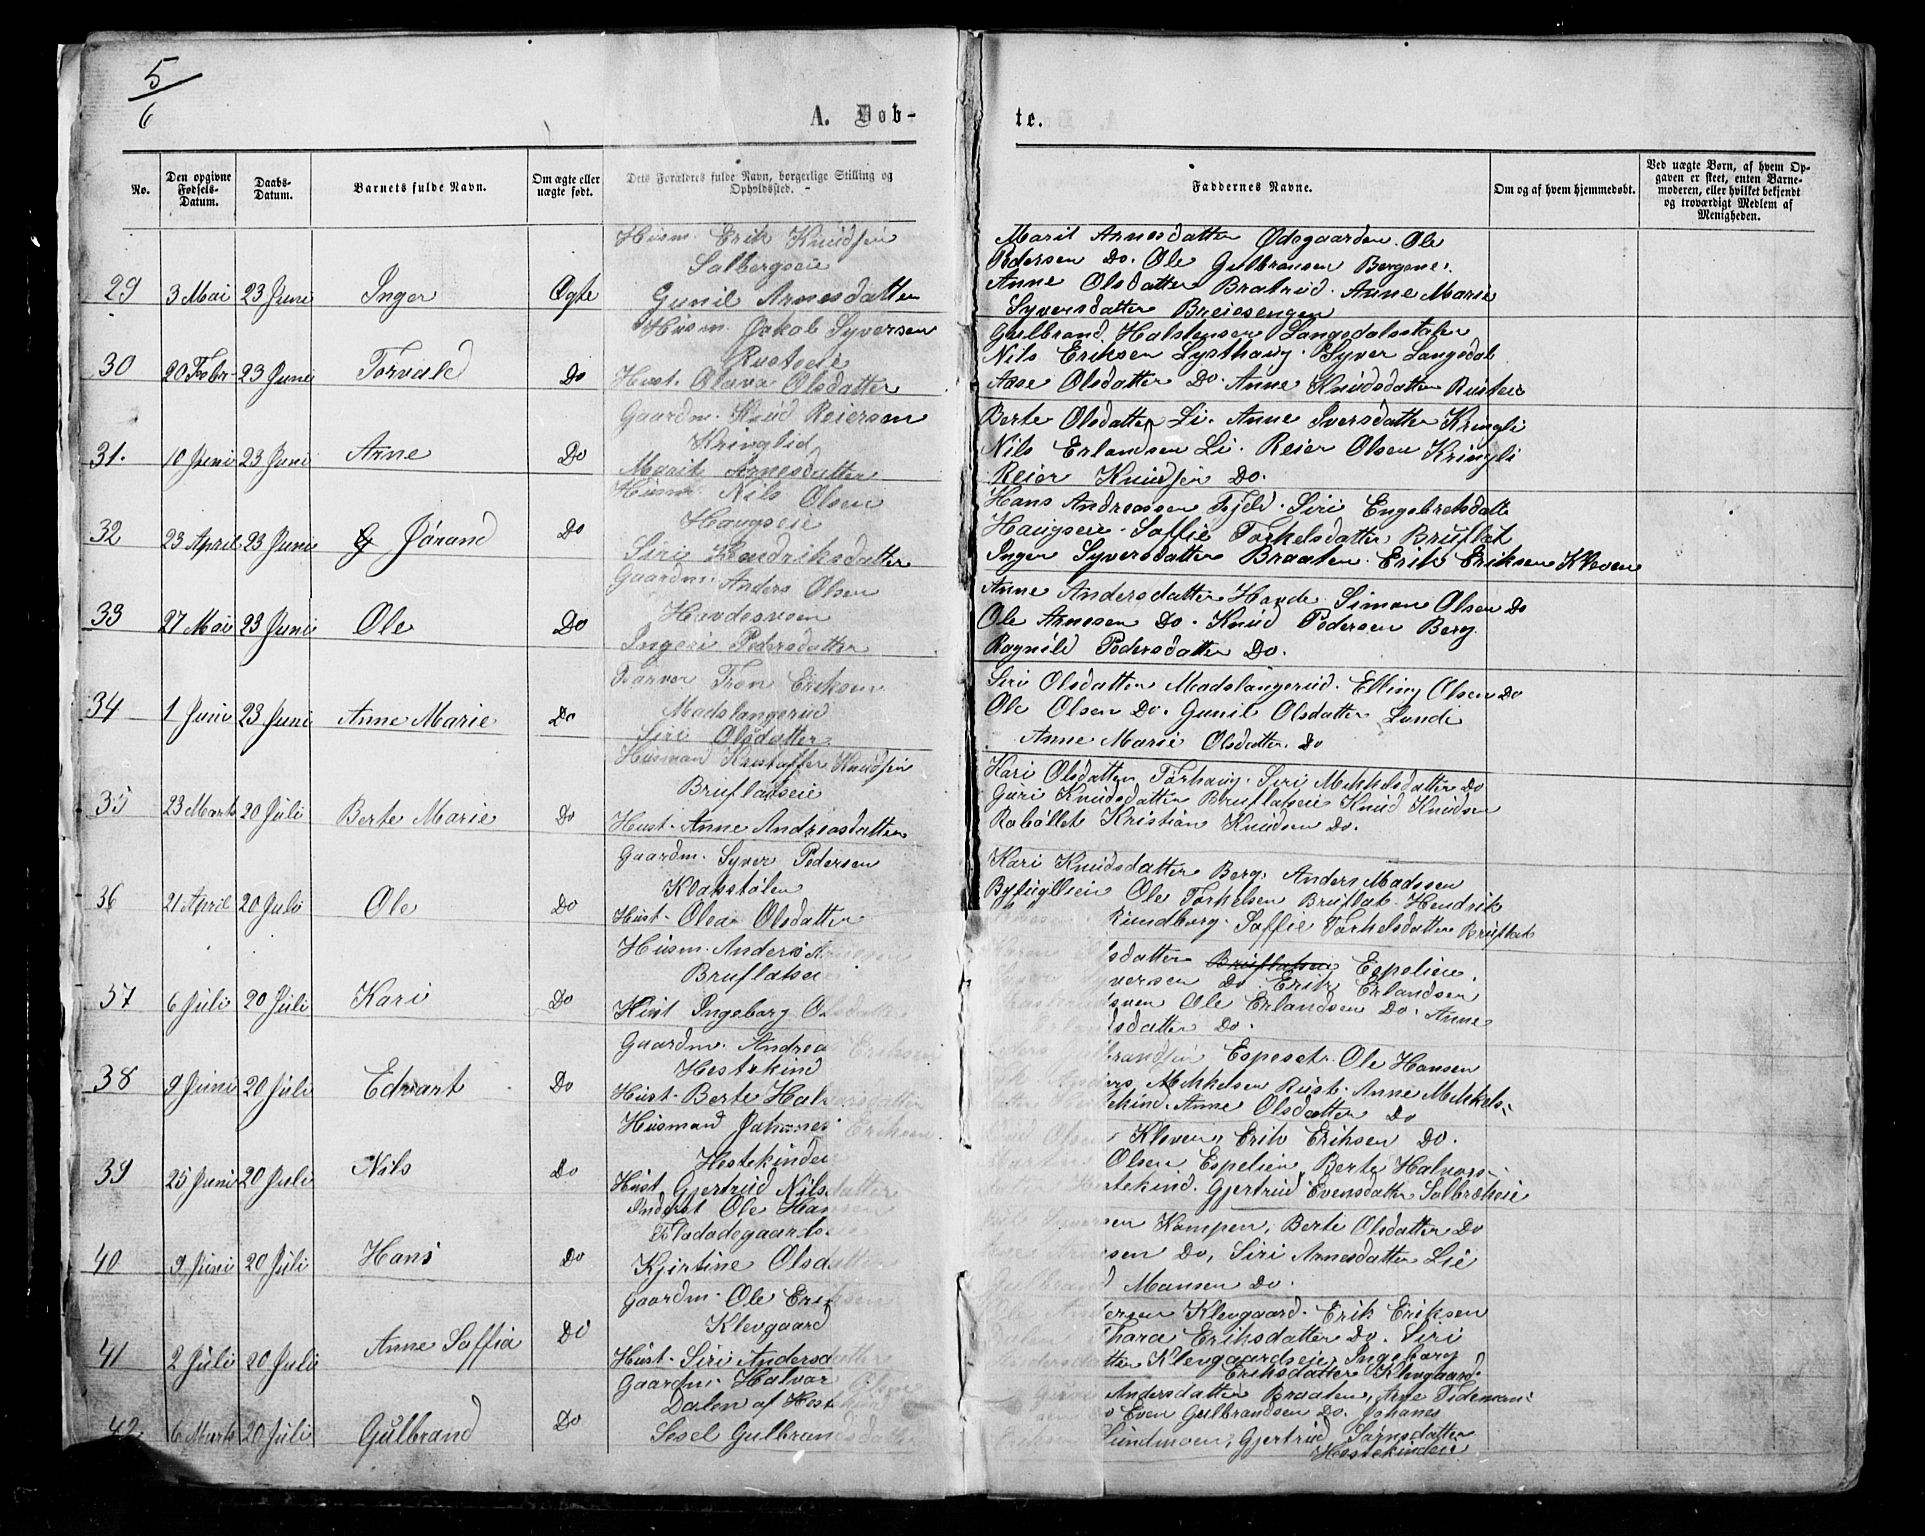 5/6
A. Døb-
te.
No.
Den opgivne Fødsels-Datum.
Daabs-Datum.
Barnets fulde Navn.
Om ægte eller uægte født.
Dets Forældres fulde Navn, borgerlige Stilling og Opholdssted.
Faddernes Navne.
Om og af hvem hjemmedøbt.
Ved uægte Børn, af hvem Op-
gaven er skeet, enten Barne-
moderen, eller hvilket bekjendt
og troværdigt Medlem af
Menigheden.
29 3 Mai 23 Juni Inger Ægte
Husm. Erik Knudsen
Solbergseie
Gunil Arnesdatter
Marit Arnesdatter Ødegaarden. Ole
Pedersen Do. Ole Gulbransen Bergene.
Anne Olsdatter Bratrud. Anne Marie
Syversdatter Breiesengen
30 20 Febr 23 Juni Torvald Do
Husm. Jakob Syversen
Rusteeie
Hust. Olava Olsdatter
Gulbrand Halstensen Langedalsstalen
Nils Eriksen Lysthaug. Syver Langedal
Aase Olsdatter Do. Anne Knudsdatter Rusteie
31. 10 Juni 23 Juni Arne Do
Gaardm. Knud Reiersen
Kringlid
Marit Arnesdatter
Berte Olsdatter Li. Anne Iversdatter Kringli
Nils Erlandsen Li. Reier Olsen Kringli
Reier Knudsen Do.
32 23 April 23 Juni Jørand Do
Husm. Nils Olsen
Haugseie
Siri Hendriksdatter
Hans Andreassen Fjeld. Siri Engebretsdatt
Haugseie. Saffie Torkelsdatter Bruflat
Inger Syversdatter Braaten. Erik Eriksen Kleven
33 27 Mai 23 Juni Ole Do
Gaardm. Anders Olsen
Havdesveen
Ingeri Pedersdatter
Anne Andersdatter Havde. Simon Olsen Do
Ole Arnesen Do. Knud Pedersen Berg
Ragnild Pedersdatter Do.
34 1 Juni 23 Juni Anne Marie Do
Garver Tron Eriksen
Madslangerud
Siri Olsdatter
Siri Olsdatter Madslangerud. Elling Olsen Do
Ole Olsen Do. Gunil Olsdatter Lunde
Anne Marie Olsdatter. Do
35 23 Marts 20 Juli Berte Marie Do
Husmand Kristoffer Knudsen
Bruflatseie
Hust. Anne Andreasdatter
Kari Olsdatter Torhaug. Siri Mikkelsdatter Do
Guri Knudsdatter Bruflatseie Knud Knudsen
Rabøllet Kristian Knudsen Do.
36 21 April 20 Juli Ole Do
Gaardm. Syver Pedersen
Klosstølen
Hust. Olea Olsdatter
Kari Knudsdatter Berg. Anders Madssen
Byfuglien Ole Torkelsen Bruflat. Hendrik
Rundborg. Saffie Torkelsdatter Bruflat
37 6 Juli 20 Juli Kari Do
Husm. Anders Arnesen
Bruflatseie
Hust Ingeborg Olsdatter
Olsdatter Bruflatseie Espelien
Syversen Do Erik Erlandsen
Ole Erlandsen Do. Anne
Erlandsdatter Do.
38 9 Juni 20 Juli Edvart Do
Gaardm. Andrea Eriksen
Hestekind
Hust. Berte Halvorsdatter
Gulbrandsen Espeset. Ole Hansen
Mikkelsen Rust. Anne Mikkels-
Anne Olsdatter Do
39 25 Juni 20 Juli Nils Do
Husmand Johanes Eriksen
Hestekindeie
Hust. Gjertrud Nilsdatter
Olsen Kleven, Erik Eriksen Do.
Olsen Espelien, Berte Halvors-
Gjertrud Evensdatter Solbrekeie
40 9 Juni 20 Juli Hans Do
Inderst Ole Hansen
Kjirtine Olsdatter
Kompen, Berte Olsdatter Do
Do, Siri Arnesdatter Lie
Gulbrand Mansen Do.
41 2 Juli 20 Juli Anne Saffia Do
Gaardm. Ole Eriksen
Klevgaard
Hust. Siri Andersdatter
Klevgaard. Erik Eriksen
Thara Eriksdatter Do. Siri
Andersdatter Klevgaardseie, Ingeborg
Eriksdatter Klevgaard.
42 6 Marts 20 Juli Gulbrand Do
Gaardm. Halvor Olsen
Dalen af Hestekind
Sesel Gulbrandsdatter
Andersdatter Braaten, Arne Tidemand
Even Gulbrandsen Do. Johanes
Eriksen Sundmoen, Gjertrud Jørnsdatter
Hestekindeie